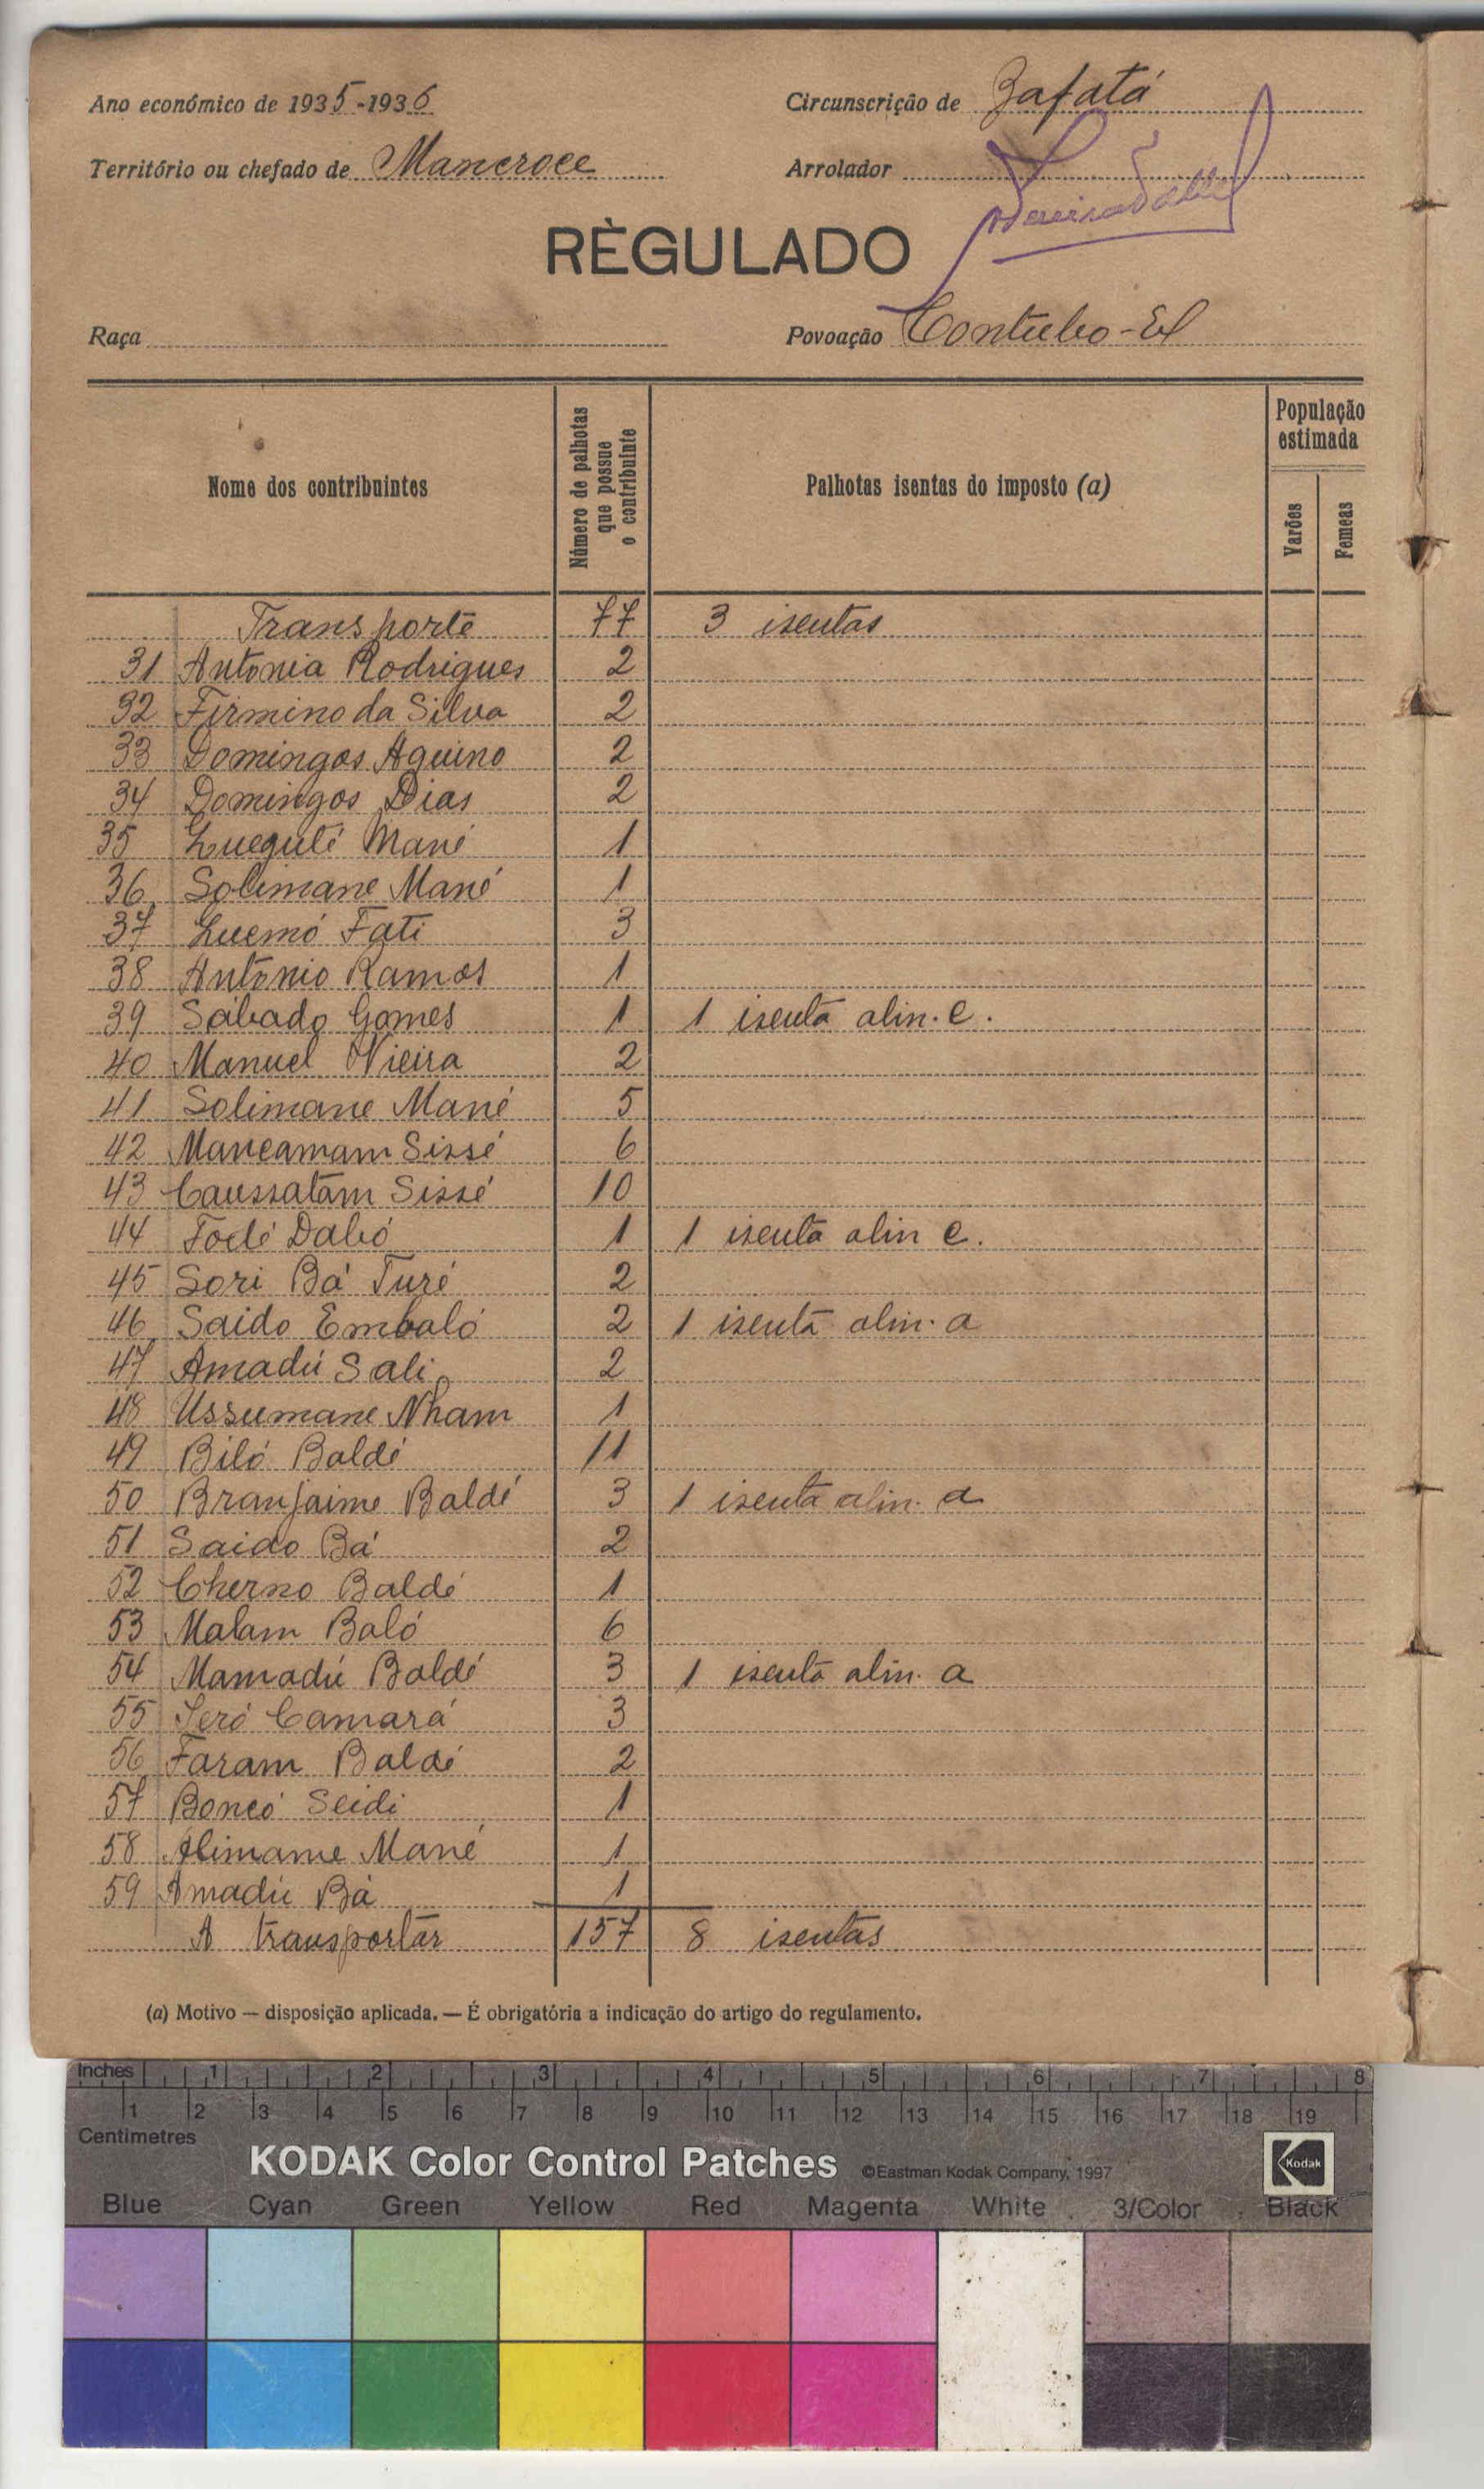 Ano económico de 1935-1936
Circunscrição de Bafatá
Território ou chefado de Mancroce
Arrolador
RÈGULADO
Raça
Povoação Contubo-El
Nome dos contribuintes
Número de palhotas que possue o contribuinte
Palhotas isentas do imposto (a)
População estimada
Varões
Femeas
Transporte 77 3 isentas
31 Antonia Rodrigues 2
32 Firmino da Silva 2
33 Domingos Aquino 2
34 Domingos Dias 2
35 Mané 1
36 Solimane Mané 1
37 Fati 3
38 António Ramos 1
39 Sábado Gomes 1 1 isenta alin. c.
40 Manuel Vieira 2
41 Solimane Mané 5
42 Mancamam Sissé 6
43 Caussatam Sissé 10
44 Fodé Dabó 1 1 isenta alin c.
45 Sori Bá Turé 2
46 Saido Embaló 2 1 isenta alin. a
47 Amadú Sali 2
48 Ussumane Nham 1
49 Biló Baldé 11
50 Branjaime Baldé 3 1 isenta alin. a
51 Saido Bá 2
52 Cherno Baldé 1
53 Malam Baló 6
54 Mamadú Baldé 3 1 isenta alin. a
55 Seró Camará 3
56 Faram Baldé 2
57 Boncó Seidi 1
58 Alimame Mané 1
59 Amadú Bá 1
A transportar 157 8 isentas
(a) Motivo — disposição aplicada. — É obrigatória a indicação do artigo do regulamento.
Inches 1 2 3 4 5 6 7 8
1 2 3 4 5 6 7 8 9 10 11 12 13 14 15 16 17 18 19
Centimetres
KODAK Color Control Patches ©Eastman Kodak Company, 1997 Kodak
Blue Cyan Green Yellow Red Magenta White 3/Color Black